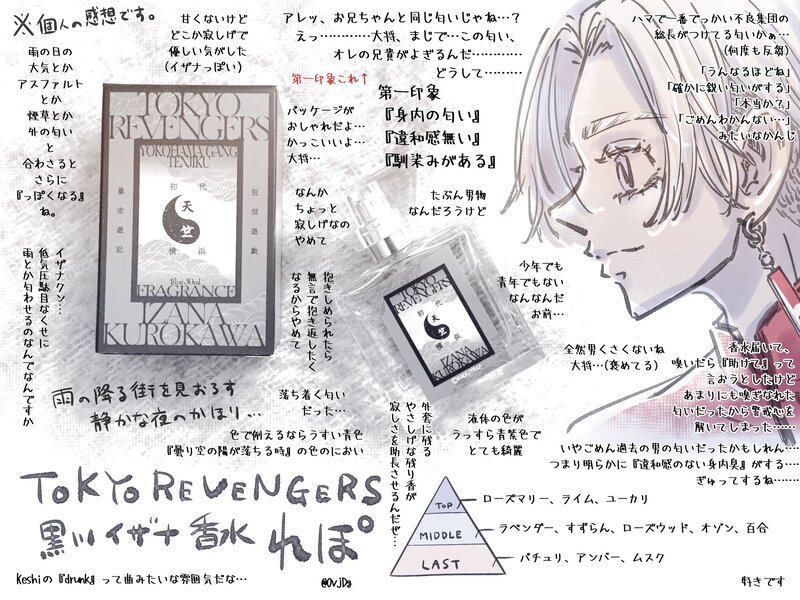 ※個人の感想です。
雨の日の
大気とか
アスファルト
とか
煙草とか
外の匂い
と
合わさると
さらに
『っぽくなる』
ね。
甘くないけど
どこか寂しげで
優しい気がした
(イザナっぽい)
アレッ、お兄ちゃんと同じ匂いじゃね…?
えっ…………大将、まじで…この匂い、
オレの兄貴がよぎるんだ…………
どうして……
第一印象これ↑
第一印象
『身内の匂い』
『違和感無い』
『馴染みがある』
ハマで一番でっかい不良集団の
総長がつけてる匂いかぁ…
(何度も反芻)
「うんなるほどね」
「確かに鋭い匂いがする」
「本当か?」
「ごめんわかんない…」
みたいなかんじ
パッケージが
おしゃれだよ…
かっこいいよ…
大将…
なんか
ちょっと
寂しげなの
やめて
たぶん男物
なんだろうけど
少年でも
青年でもない
なんなんだ
お前…
TOKYO
REVENGERS
YOKOHAMA GANG
TENJIKU
初代
狂信遊戯
暴走遊記
天竺
横浜
1fl oz・30ml
FRAGRANCE
IZANA
KUROKAWA
TOKYO
REVENGERS
初代
天竺
横浜
IZANA
KUROKAWA
イザナクン…
低気圧駄目なくせに
雨とか匂わせるのなんでなんですか
抱きしめられたら
無言で抱き返したく
なるからやめて
全然男くさくないね
大将…(褒めてる)
香水届いて、
嗅いだら『助けて』って
言おうとしたけど
あまりにも嗅ぎなれた
匂いだったから警戒心を
解いてしまった……
いやごめん過去の男の匂いだったかもしれん…
つまり明らかに『違和感のない身内臭』がする…
ぎゅってするね……
雨の降る街を見おろす
静かな夜のかほり…
落ち着く匂い
だった…
色で例えるならうすい青色
『曇り空の陽が落ちる時』の色のにおい
外套に残る
やさしげな残り香が
寂しさを助長させるんだぜ…
液体の色が
うっすら青紫色で
とても綺麗
TOKYO REVENGERS
黒川イザナ香水
れぽ。
TOP
ローズマリー、ライム、ユーカリ
MIDDLE
ラベンダー、すずらん、ローズウッド、オゾン、百合
LAST
パチュリ、アンバー、ムスク
Keshiの『drunk』って曲みたいな雰囲気だな…
@OvjDy
好きです